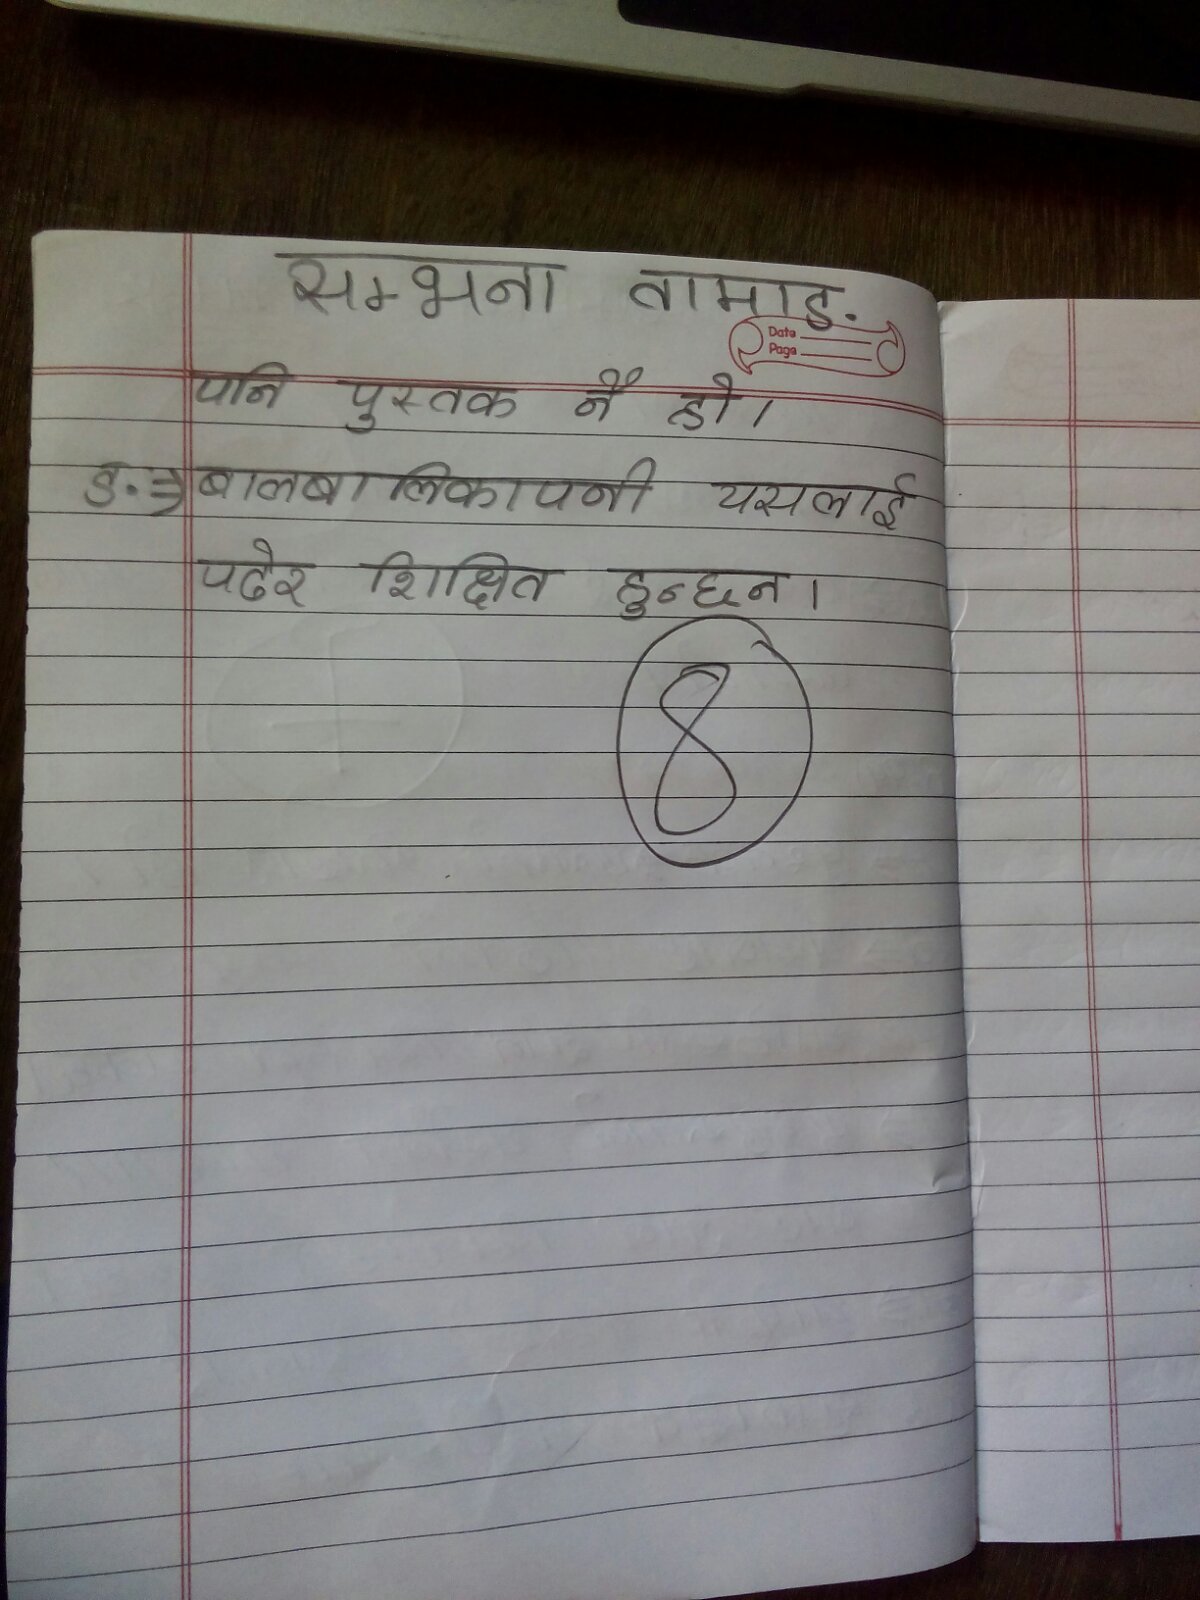 सम्भना तामाङ
Date
Page
पनि पुस्तक नै हो।
ङ.⇒ बालबालिकापनी यसलाई
पढेर शिक्षित हुन्छन।
8